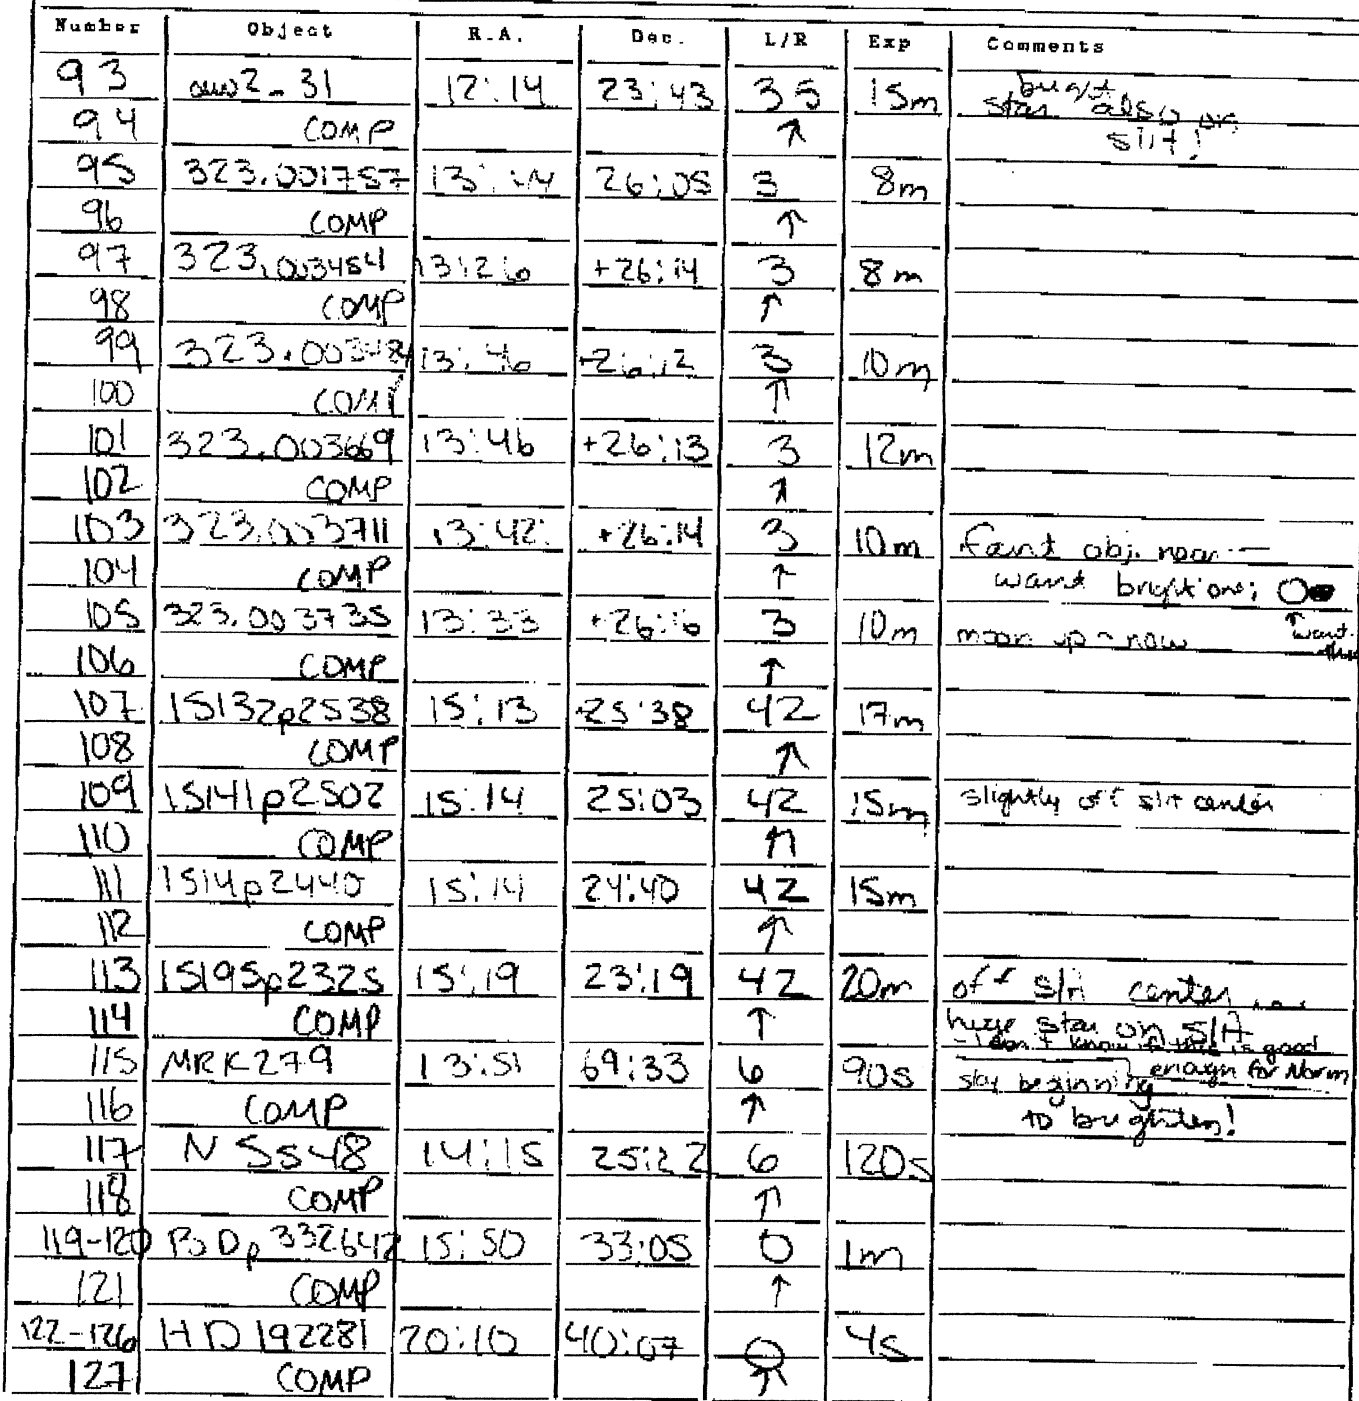 Number Object R.A. Dec. L/R Exp Comments
93 2-31 12:14 23:43 35 15m bright star also on slit!
94 COMP ↑
95 323.001757 13: 26:05 3 8m
96 COMP ↑
97 323.003454 13:26 +26:14 3 8m
98 COMP ↑
99 323.00348 13:46 +26:12 3 10m
100 COMP ↑
101 323.003669 13:46 +26:13 3 12m
102 COMP ↑
103 323.003711 13:42: +26:14 3 10m faint obj. near —
104 COMP ↑ want bright one;
105 323.003735 13:33 +26:16 3 10m moon up - now ↑ want this
106 COMP ↑
107 15132p2538 15:13 25:38 42 17m
108 COMP ↑
109 15141p2502 15:14 25:03 42 15m slightly off slit center
110 COMP ↑
111 1514p2440 15:14 24:40 42 15m
112 COMP ↑
113 15195p2325 15:19 23:19 42 20m off slit center ...
114 COMP ↑ huge star on slit
- don't know if this is good
115 MRK279 13:51 69:33 6 90s sky beginning enough for Norm
116 COMP ↑ to brighten!
117 N5548 14:15 25:22 6 120s
118 COMP ↑
119-120 BDp332642 15:50 33:05 0 1m
121 COMP ↑
122-126 HD192281 20:10 40:07 0 4s
127 COMP ↑